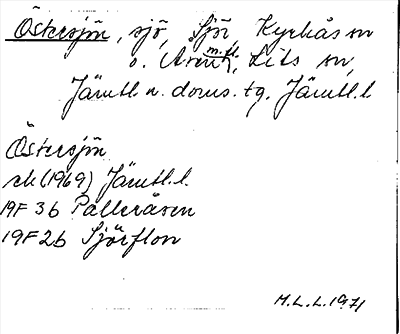 Östersjön, sjö, Sjör, Kyrkås sn
o. m.fl., Lits sn,
Jämtl. n. doms. tg. Jämtl. l.
Östersjön
ek (1969) Jämtl. l.
19F 3b Pålleråsen
19F 2b Sjörflon
M.L.L. 1971